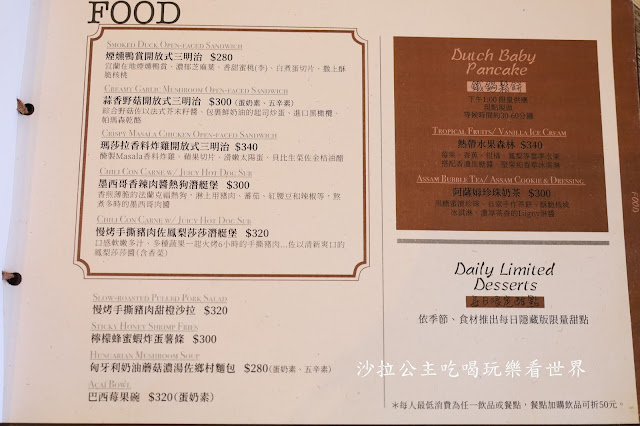 FOOD
SMOKED DUCK OPEN-FACED SANDWICH
煙燻鴨賞開放式三明治 $280
宜蘭在地煙燻鴨賞、濃郁芝麻葉、香甜蜜桃(李)、白煮蛋切片、撒上酥
脆核桃
CREAMY GARLIC MUSHROOM OPEN-FACED SANDWICH
蒜香野菇開放式三明治 $300 (蛋奶素、五辛素)
綜合野菇佐以法式芥末籽醬、包裹鮮奶油的起司炒蛋、進口黑橄欖、
帕瑪森乾酪
CRISPY MASALA CHICKEN OPEN-FACED SANDWICH
瑪莎拉香料炸雞開放式三明治 $340
醃製Masala香料炸雞、蘋果切片、滑嫩太陽蛋、貝比生菜佐金桔油醋
CHILI CON CARNE W/ JUICY HOT DOG SUB
墨西哥香辣肉醬熱狗潛艇堡 $300
香煎薄脆的法蘭克福熱狗，淋上用豬肉、蕃茄、紅腰豆和辣椒等，熬
煮多時的墨西哥肉醬
CHILI CON CARNE W/ JUICY HOT DOG SUB
慢烤手撕豬肉佐鳳梨莎莎潛艇堡 $320
口感軟嫩多汁、多種蔬果一起火烤6小時的手撕豬肉...佐以清新爽口的
鳳梨莎莎醬(含香菜)
SLOW-ROASTED PULLED PORK SALAD
慢烤手撕豬肉甜橙沙拉 $320
STICKY HONEY SHRIMP FRIES
檸檬蜂蜜蝦炸蛋薯條 $300
HUNGARIAN MUSHROOM SOUP
匈牙利奶油蘑菇濃湯佐鄉村麵包 $280(蛋奶素、五辛素)
ACAI BOWL
巴西莓果碗 $320(蛋奶素)
Dutch Baby
Pancake
鐵鍋鬆餅
下午1:00限量供應
等候時間約30-60分鐘
TROPICAL FRUITS/ VANILLA ICE CREAM
熱帶水果森林 $340
ASSAM BUBBLE TEA/ ASSAM COOKIE & DRESSING
阿薩姆珍珠奶茶 $300
FOOD
Daily Limited
Desserts
每日限定甜點
依季節、食材推出每日隱藏版限量甜點
沙拉公主吃喝玩樂看世界
*每人最低消費為任一飲品或餐點，餐點加購飲品可折50元。